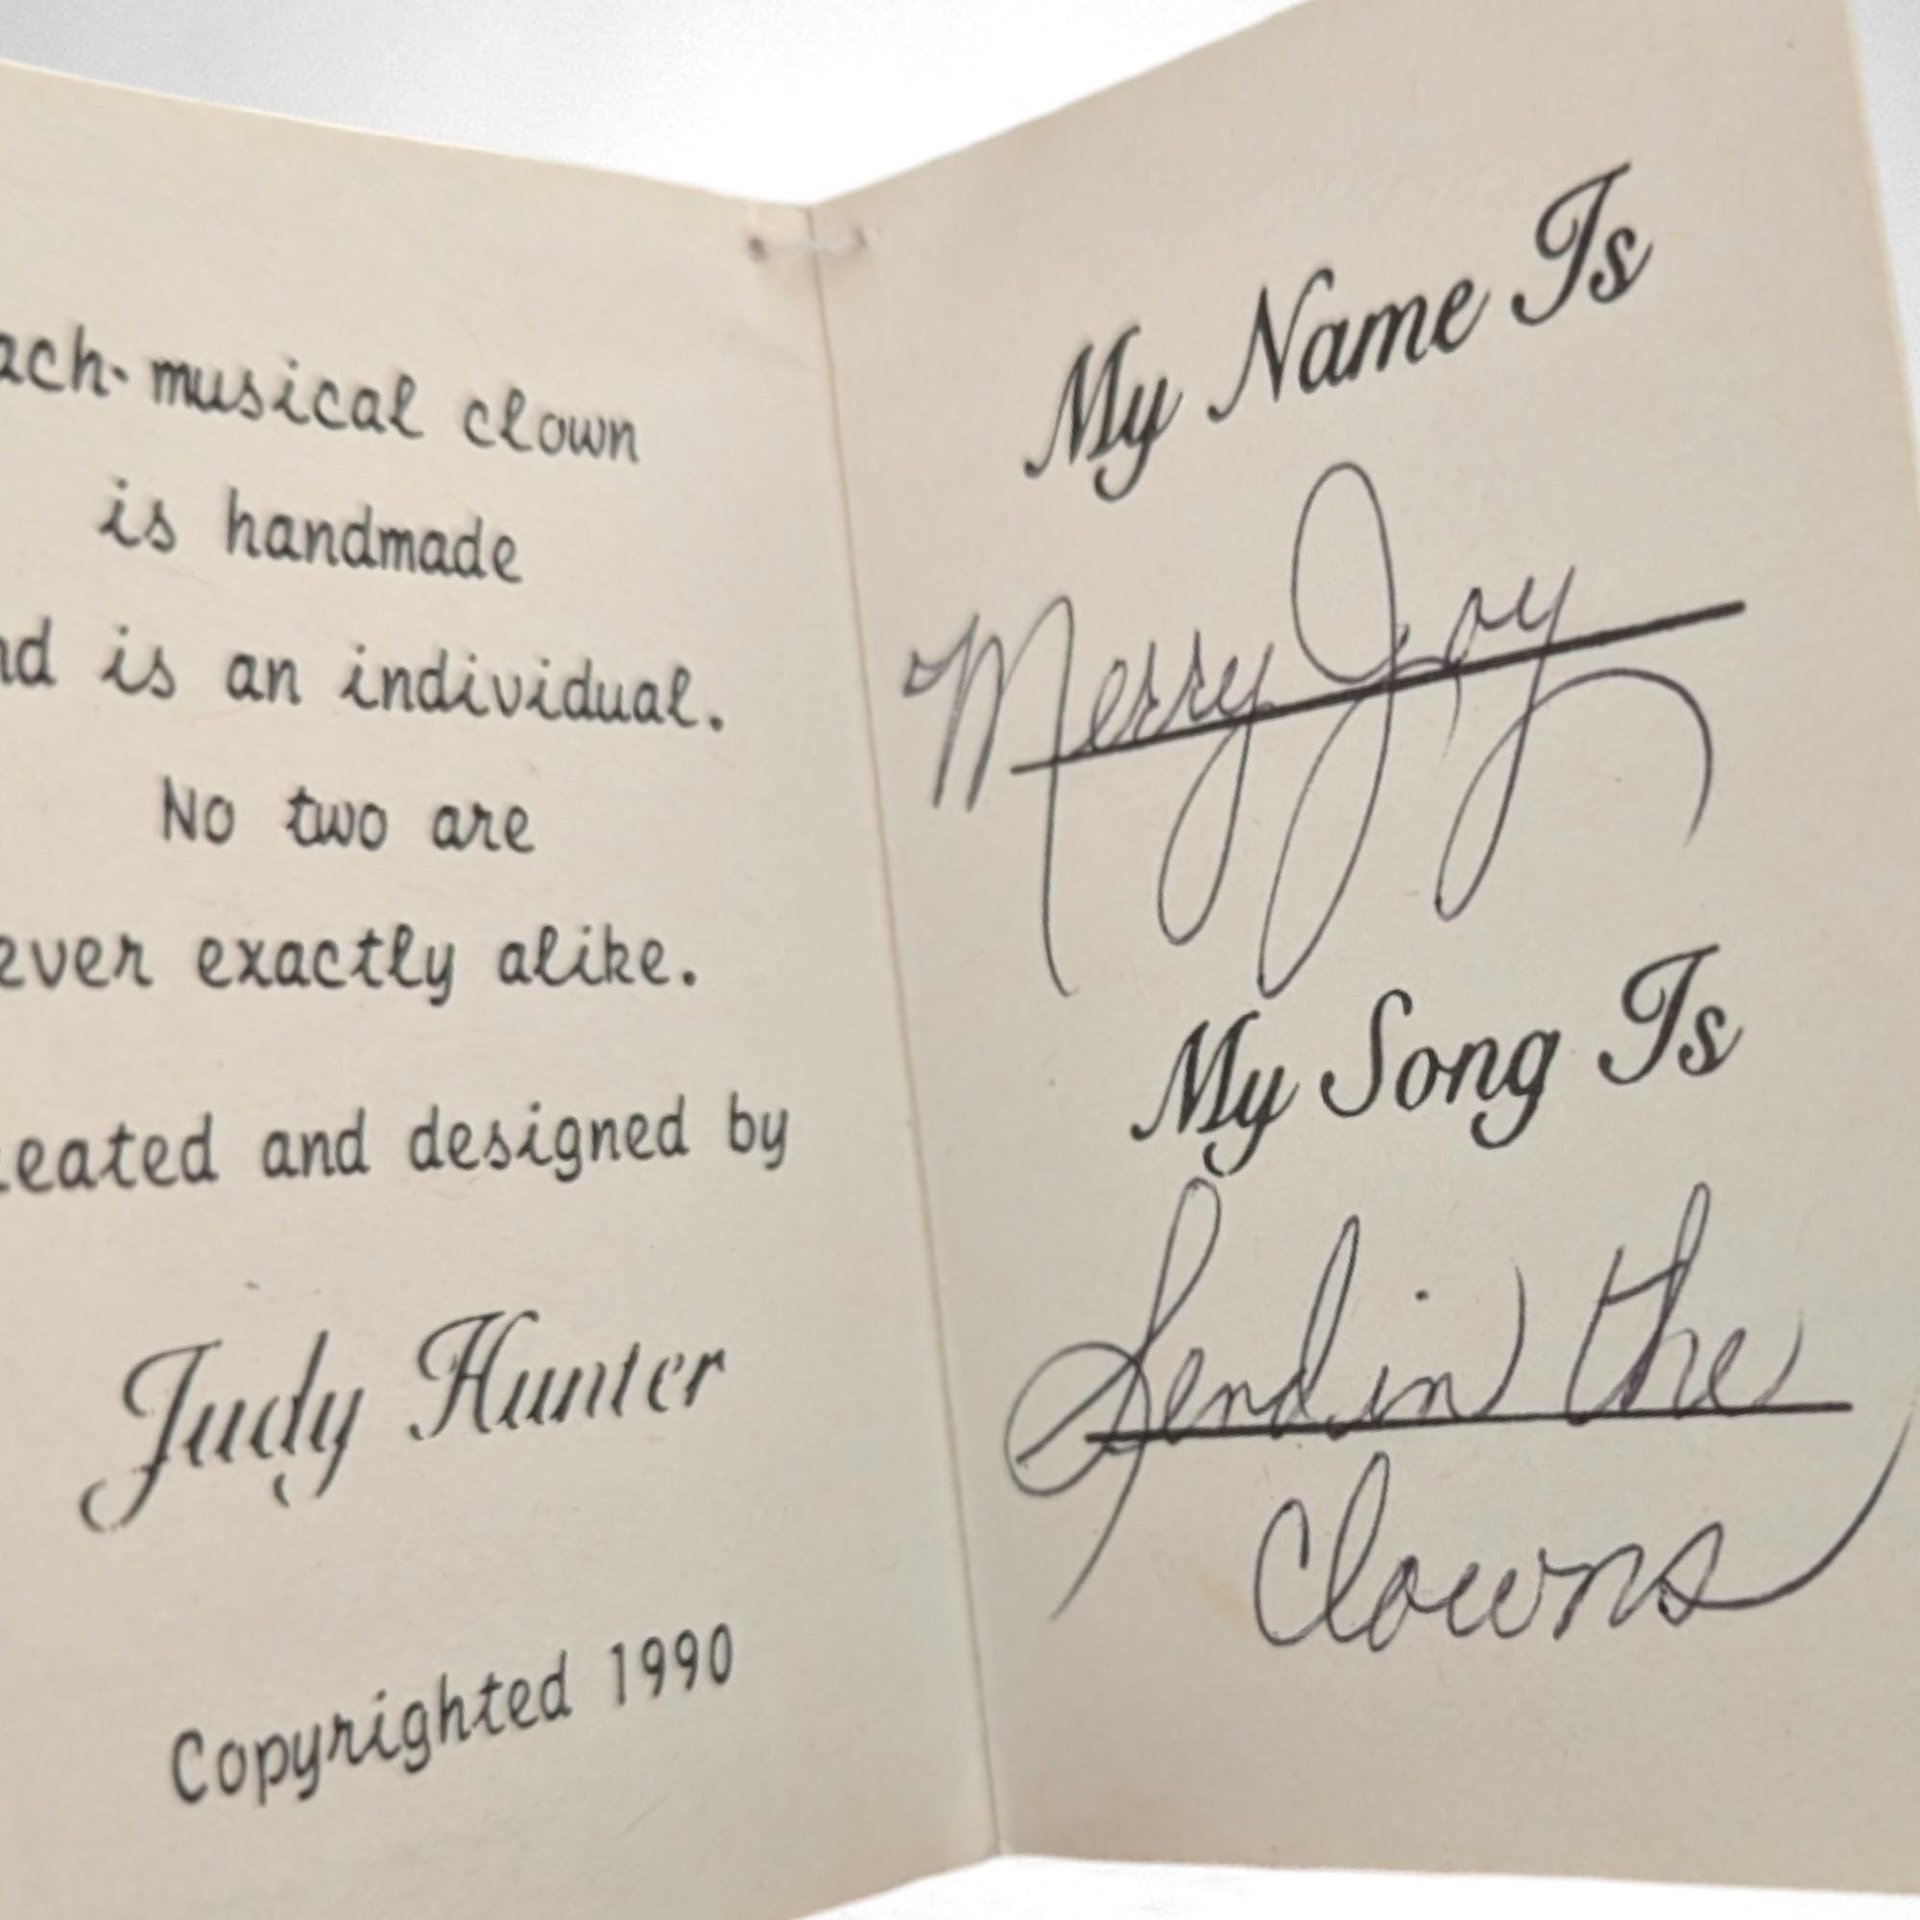 ach musical clown
is handmade
nd is an individual.
No two are
ever exactly alike.
eated and designed by
Judy Hunter
Copyrighted 1990
My Name Is
Merry Joy
My Song Is
Send in the
Clowns